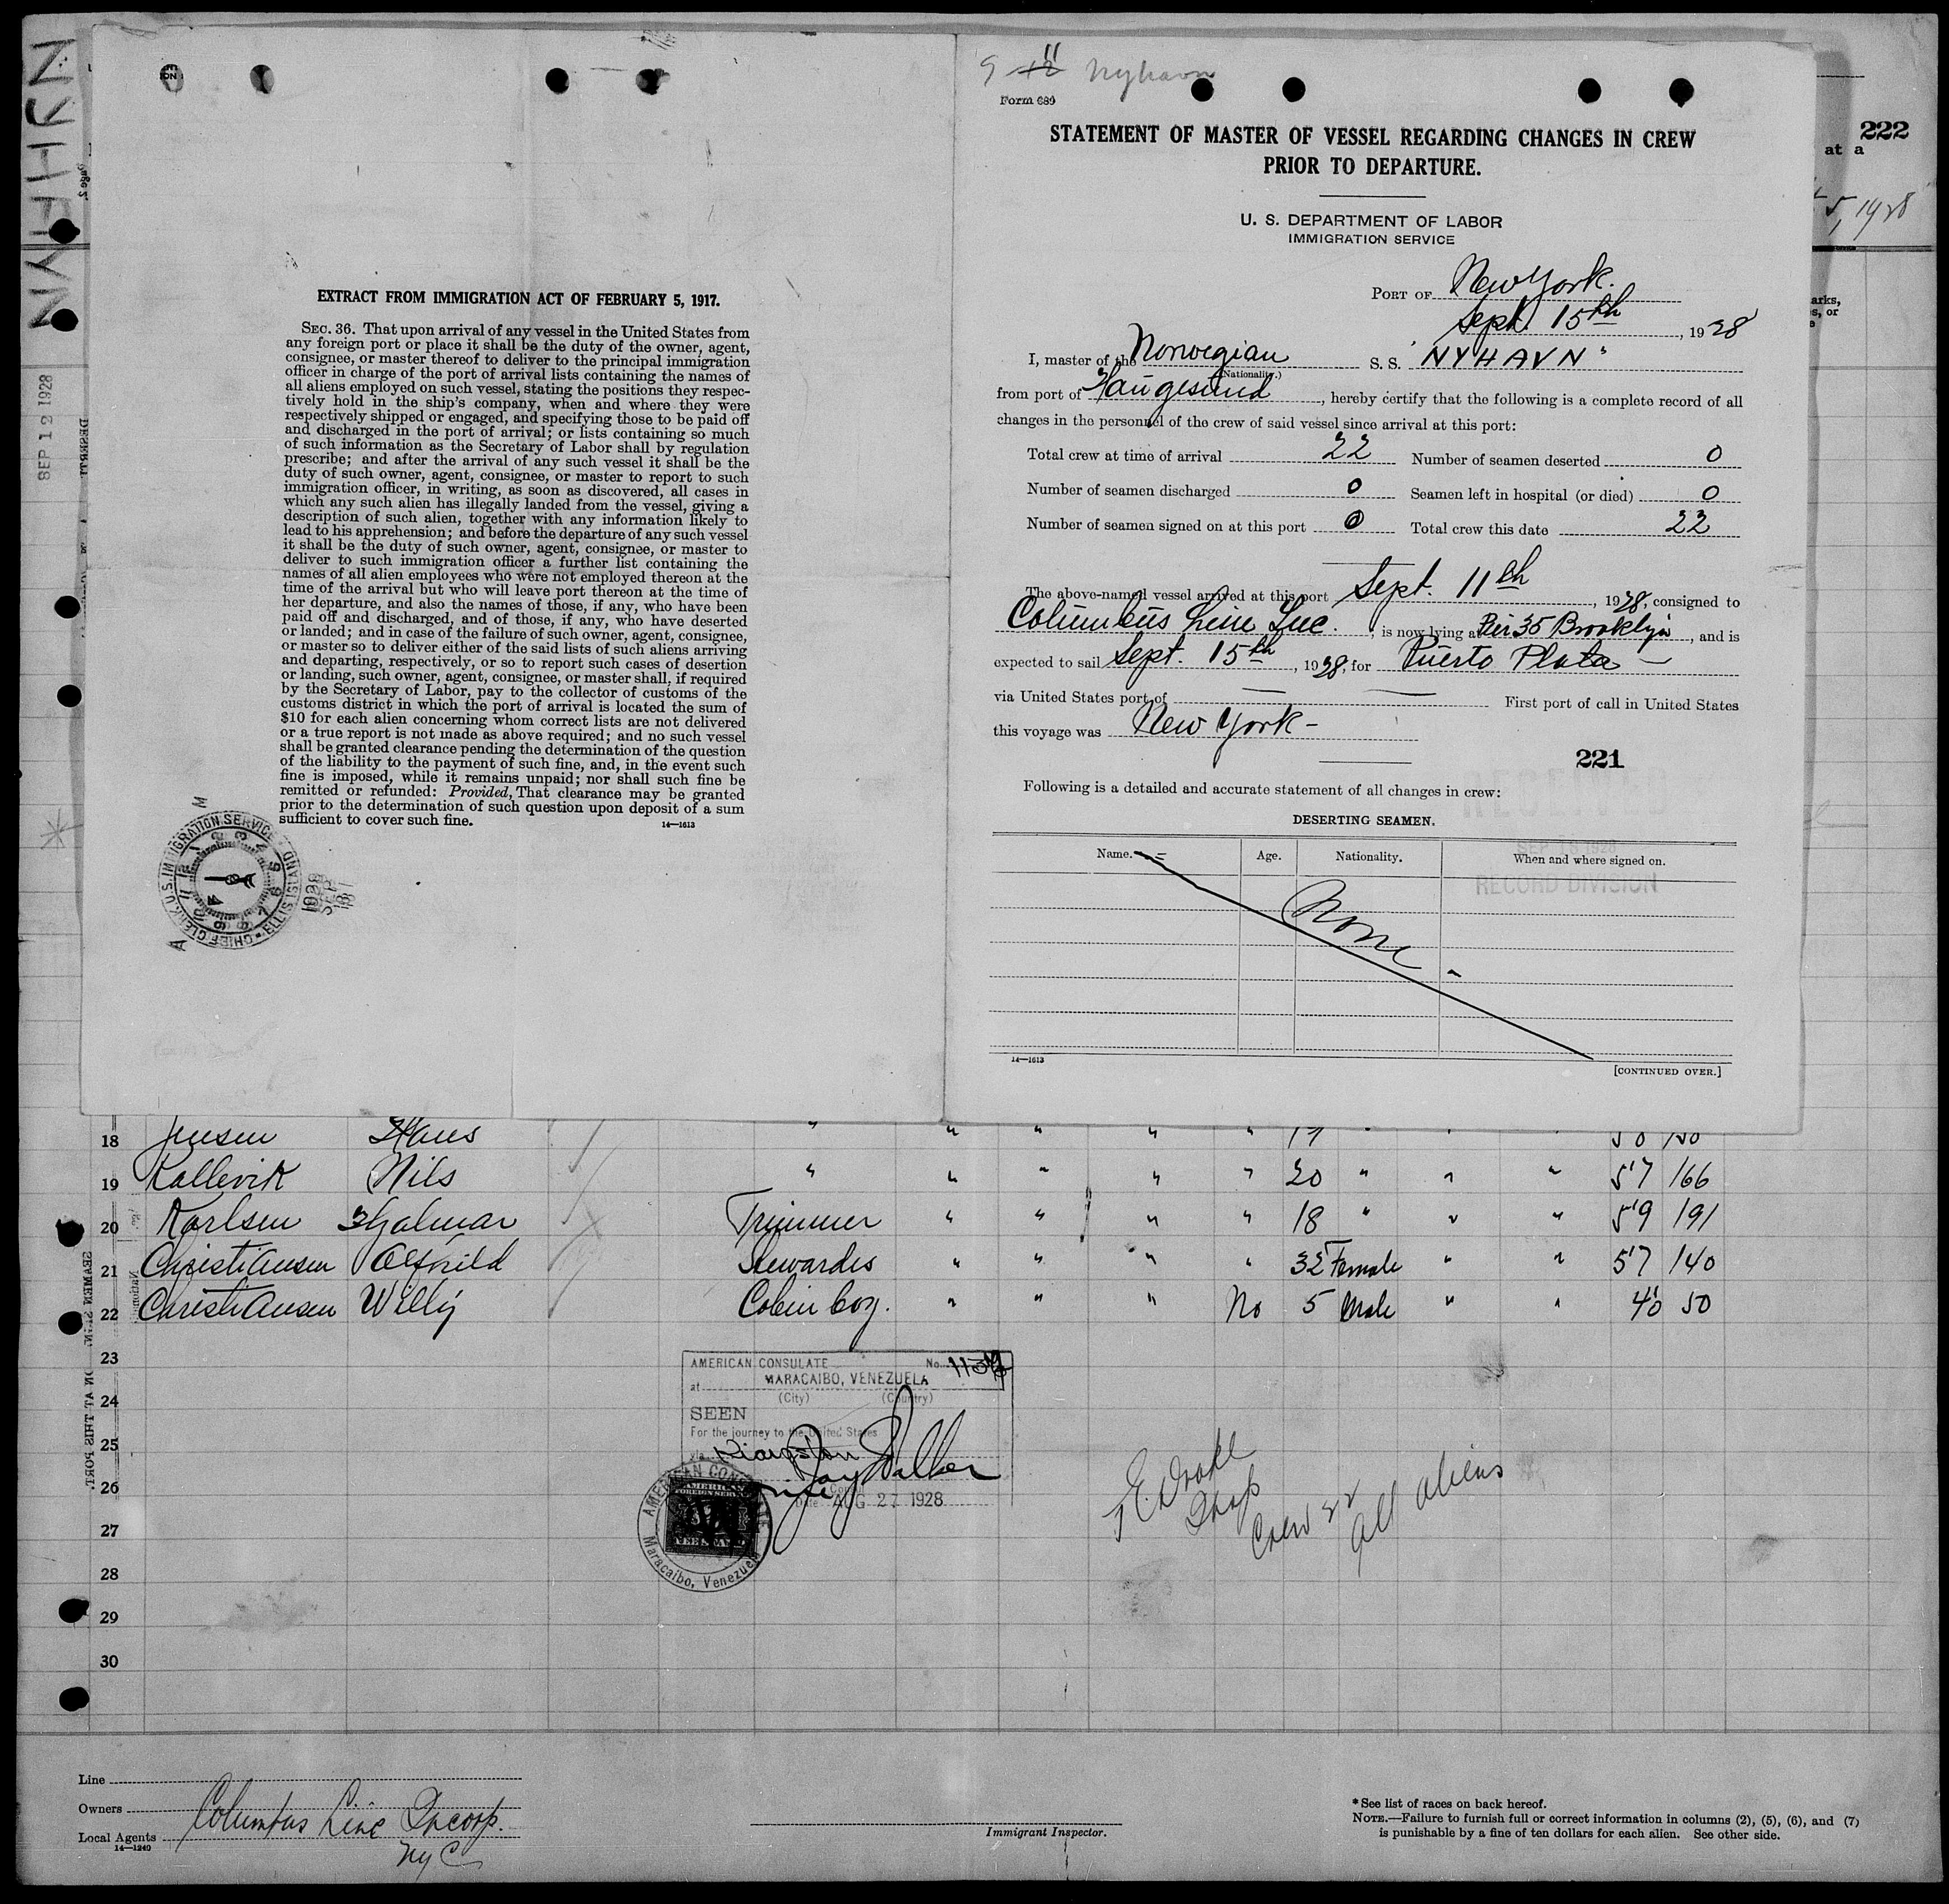 NYHAVN
SEP 12 1928
EXTRACT FROM IMMIGRATION ACT OF FEBRUARY 5, 1917.
SEC. 36. That upon arrival of any vessel in the United States from
any foreign port or place it shall be the duty of the owner, agent,
consignee, or master thereof to deliver to the principal immigration
officer in charge of the port of arrival lists containing the names of
all aliens employed on such vessel, stating the positions they respec-
tively hold in the ship's company, when and where they were
respectively shipped or engaged, and specifying those to be paid off
and discharged in the port of arrival; or lists containing so much
of such information as the Secretary of Labor shall by regulation
prescribe; and after the arrival of any such vessel it shall be the
duty of such owner, agent, consignee, or master to report to such
immigration officer, in writing, as soon as discovered, all cases in
which any such alien has illegally landed from the vessel, giving a
description of such alien, together with any information likely to
lead to his apprehension; and before the departure of any such vessel
it shall be the duty of such owner, agent, consignee, or master to
deliver to such immigration officer a further list containing the
names of all alien employees who were not employed thereon at the
time of the arrival but who will leave port thereon at the time of
her departure, and also the names of those, if any, who have been
paid off and discharged, and of those, if any, who have deserted
or landed; and in case of the failure of such owner, agent, consignee,
or master so to deliver either of the said lists of such aliens arriving
and departing, respectively, or so to report such cases of desertion
or landing, such owner, agent, consignee, or master shall, if required
by the Secretary of Labor, pay to the collector of customs of the
customs district in which the port of arrival is located the sum of
$10 for each alien concerning whom correct lists are not delivered
or a true report is not made as above required; and no such vessel
shall be granted clearance pending the determination of the question
of the liability to the payment of such fine, and, in the event such
fine is imposed, while it remains unpaid; nor shall such fine be
remitted or refunded: Provided, That clearance may be granted
prior to the determination of such question upon deposit of a sum
sufficient to cover such fine.
14—1613
CHIEF CLERK, U.S. IMMIGRATION SERVICE ELLIS ISLAND
9 11 Nyhavn
Form 689
STATEMENT OF MASTER OF VESSEL REGARDING CHANGES IN CREW
PRIOR TO DEPARTURE.
U. S. DEPARTMENT OF LABOR
IMMIGRATION SERVICE
PORT OF New York.
Sept. 15th, 1928
I, master of the Norwegian S. S. "NYHAVN"
(Nationality.)
from port of Haugesund, hereby certify that the following is a complete record of all
changes in the personnel of the crew of said vessel since arrival at this port:
Total crew at time of arrival 22 Number of seamen deserted 0
Number of seamen discharged 0 Seamen left in hospital (or died) 0
Number of seamen signed on at this port 0 Total crew this date 22
The above-named vessel arrived at this port Sept. 11th, 1928, consigned to
Columbus Line Inc. is now lying at Pier 35 Brooklyn, and is
expected to sail Sept. 15th, 1928, for Puerto Plata —
via United States port of — First port of call in United States
this voyage was New York —
221
Following is a detailed and accurate statement of all changes in crew:
DESERTING SEAMEN.
Name. Age. Nationality. When and where signed on.
RECORD DIVISION
None.
14—1613
[CONTINUED OVER.]
222
at a
5, 1928
18 Jensen Hans " " " " " 17 " 50 150
19 Kallevik Nils " " " " " 20 " " " 5'7 166
20 Karlsen Hjalmar Trimmer " " " " 18 " " " 5'9 191
21 Christiansen Alfhild Stewardes " " " " 32 Female " " 5'7 140
22 Christiansen Willy Cabin boy. " " " No 5 Male " " 4'0 50
23
24
25
26
27
28
29
30
AMERICAN CONSULATE No.
at MARACAIBO, VENEZUELA
(City) (Country)
SEEN
For the journey to the United States
via Kingston
Date: AUG 27 1928
AMERICAN CONSULATE
Maracaibo, Venezuela
Crew 22
all aliens
Line
Owners
Columbus Line Incorp.
Local Agents
NYC
14—1240
Immigrant Inspector.
* See list of races on back hereof.
NOTE.—Failure to furnish full or correct information in columns (2), (5), (6), and (7)
is punishable by a fine of ten dollars for each alien. See other side.